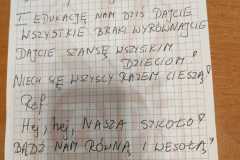 I EDUKACJĘ NAM DZIŚ DAJCIE
WSZYSTKIE BRAKI WYRÓWNAJCIE
DAJCIE SZANSĘ WSZYSKIM
DZIECIOM!
NIECH SIĘ WSZYSCY RAZEM CIESZĄ!
Ref
Hej, hej, NASZA SZKOŁO!
BĄDŹ NAM RÓWNĄ I WESOŁĄ!